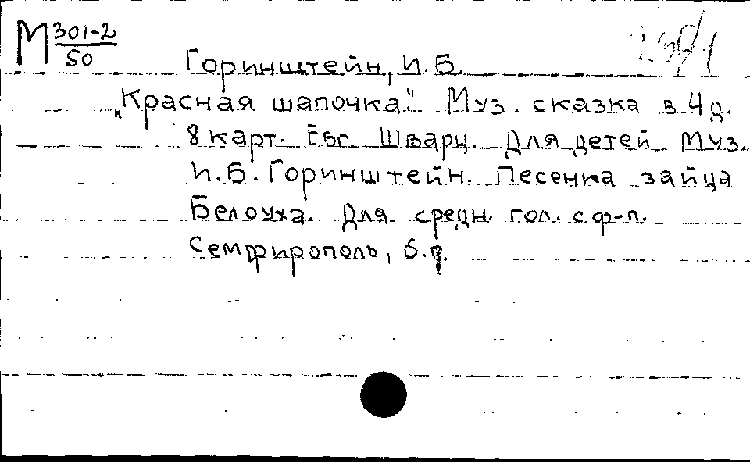 М 301-2
50
Горинштейн, И.Б.
„Красная шапочка." Муз. сказка в 4 д.
8 карт. Евг. Шварц. Для детей Муз.
И.Б. Горинштейн. Песенка зайца
Белоуха. Для средн. гол. с ф-п.
Семфирополь, б.д.